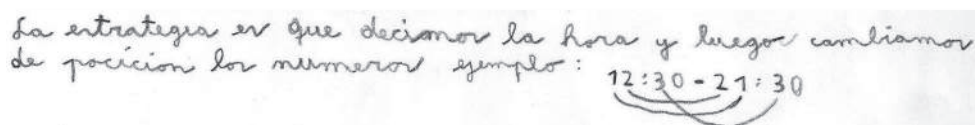 La estrategia es que decimos la hora y luego cambiamos
de pocicion los numeros ejemplo: 12:30 - 21:30